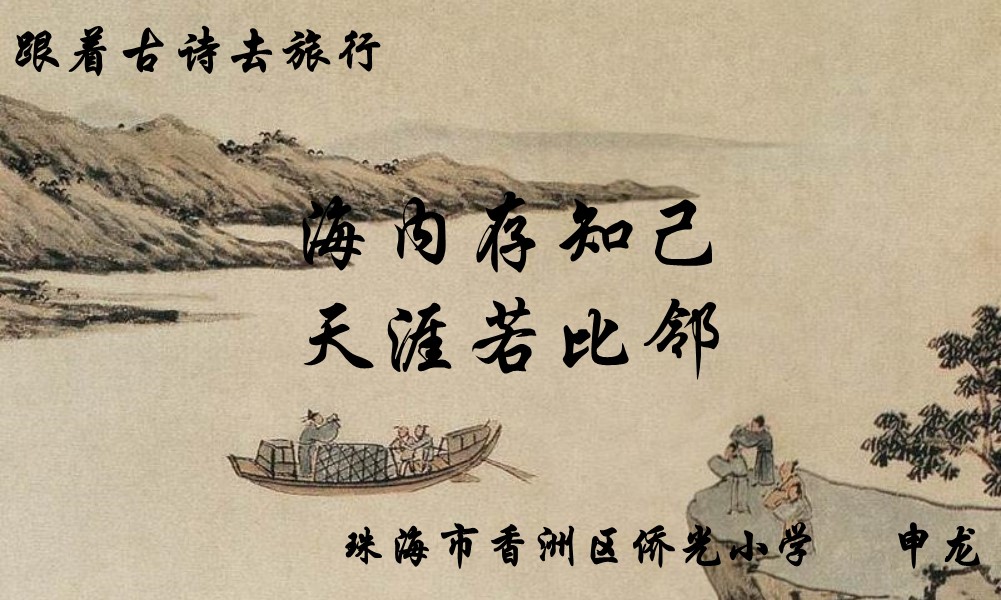 跟着古诗去旅行
海内存知己
天涯若比邻
珠海市香洲区侨光小学 申龙